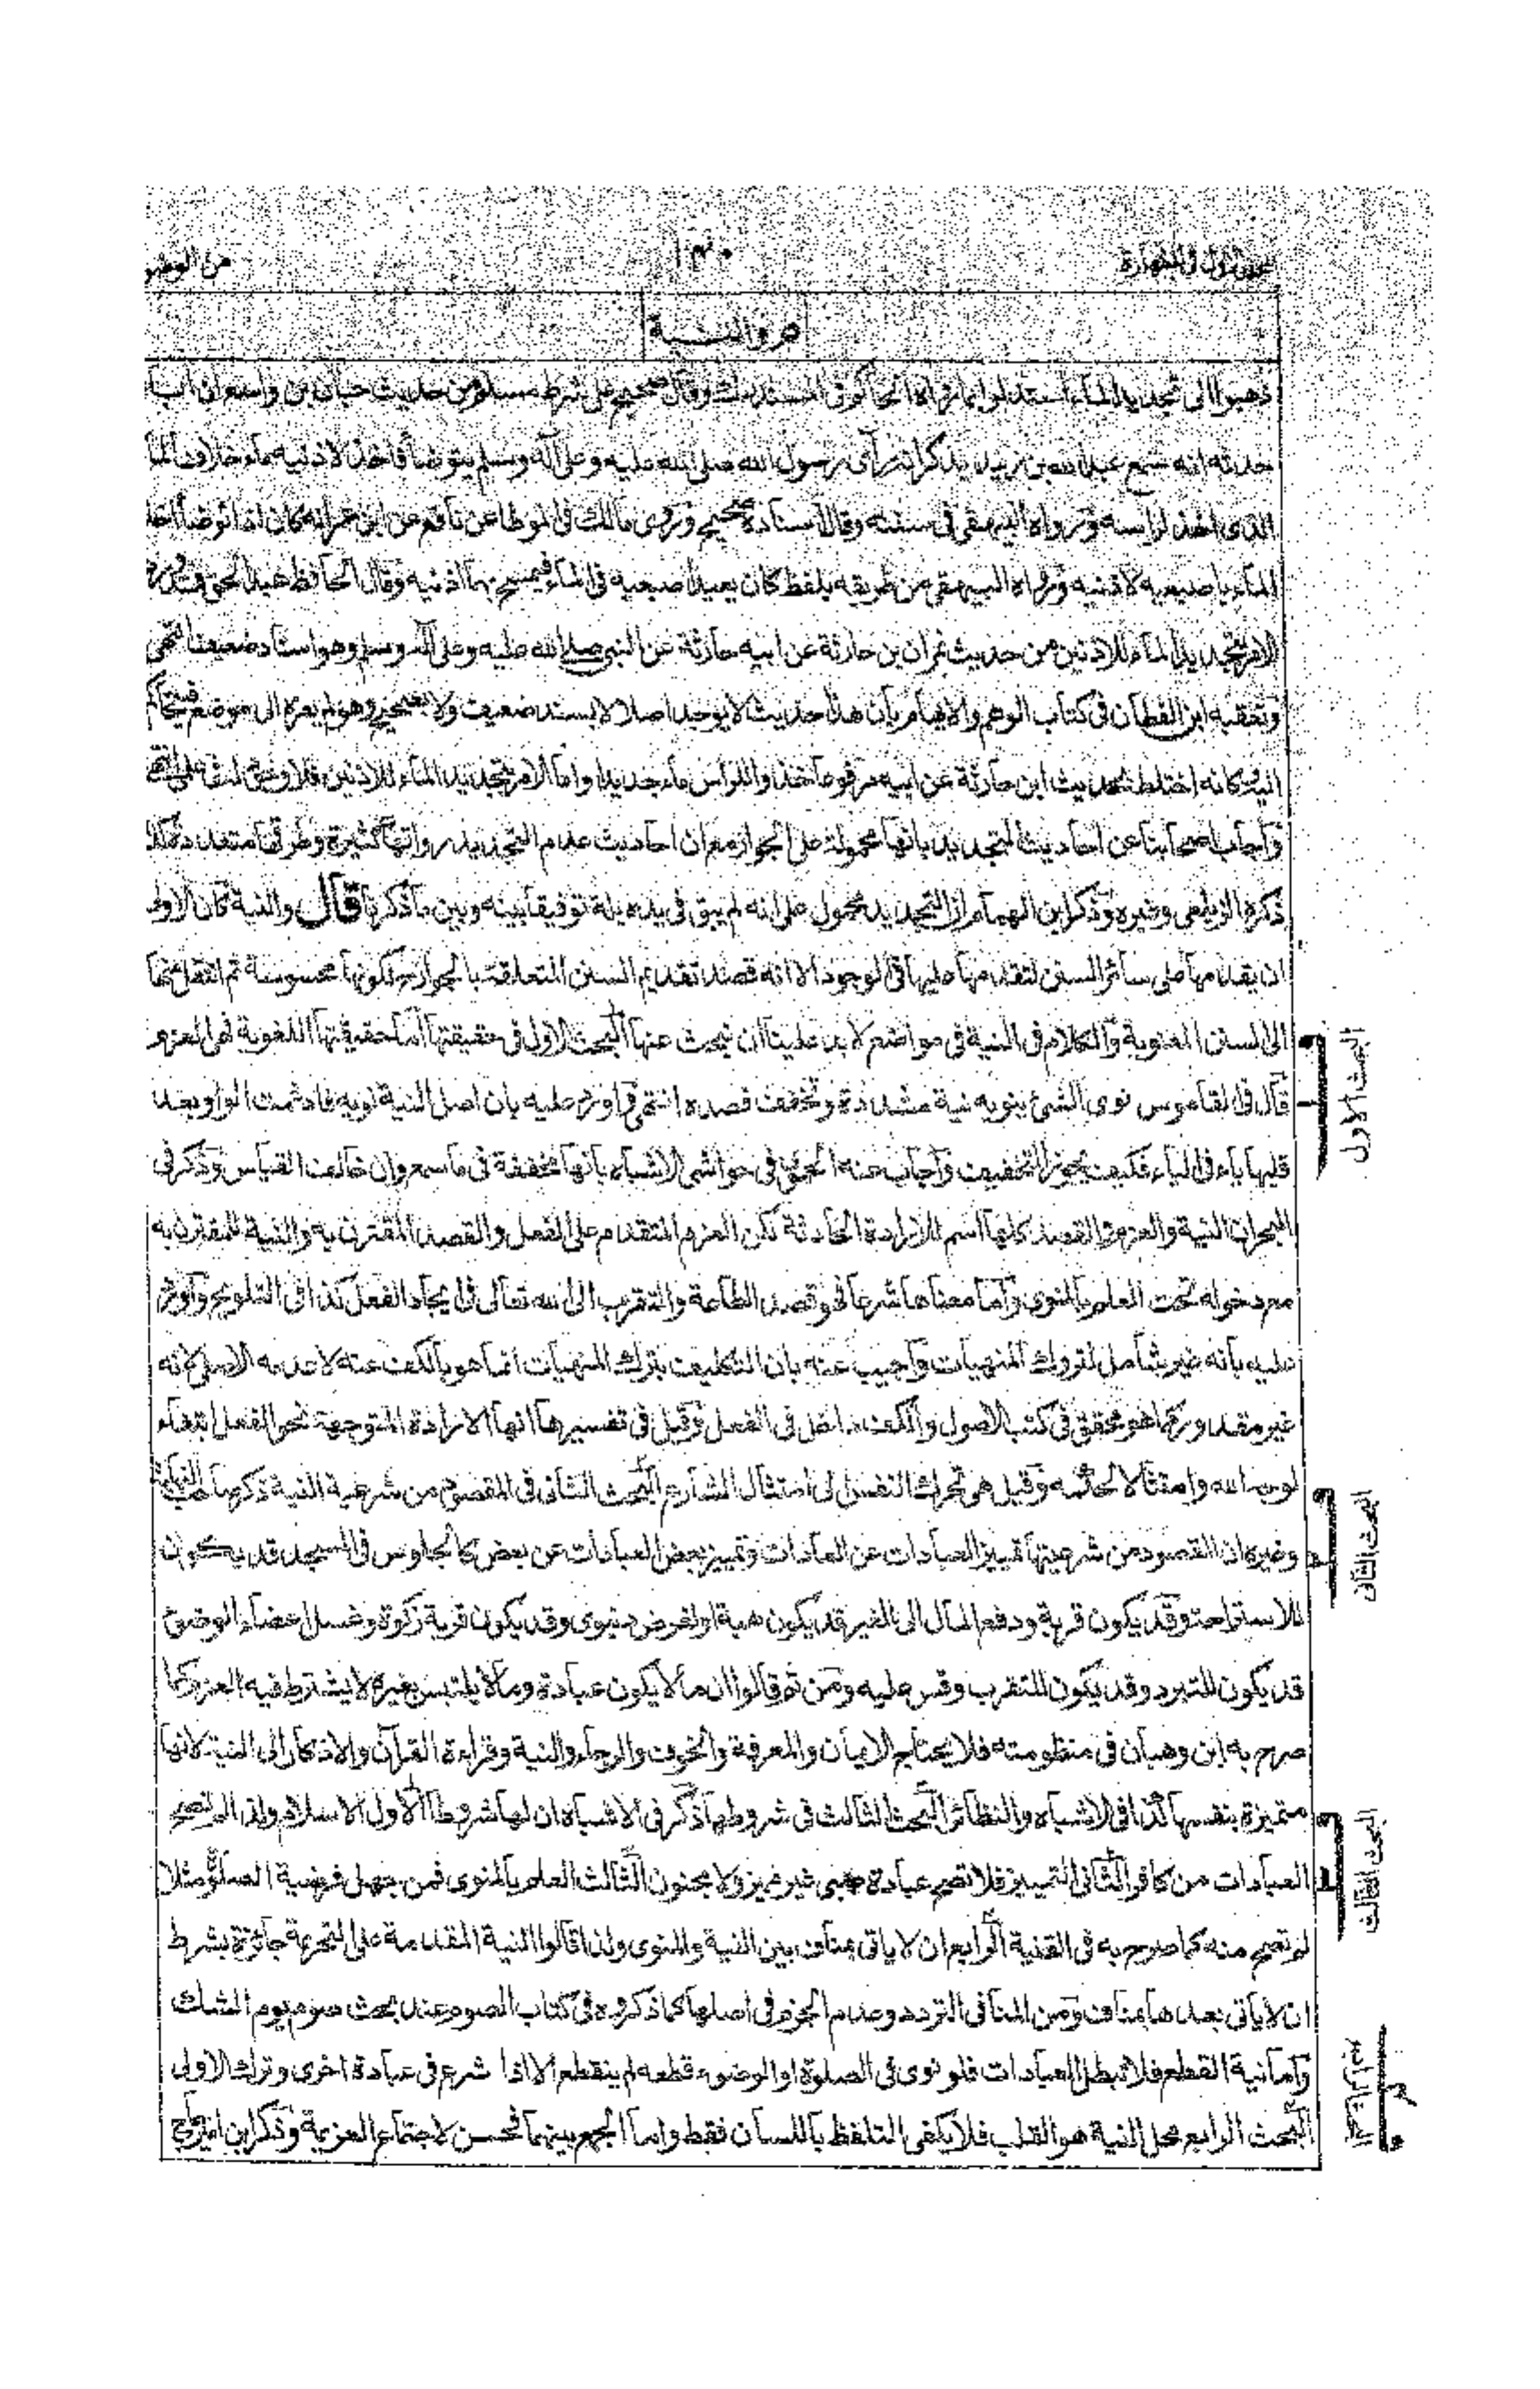 في الطهارة
١٣٠
من الوضو
م والنية
ذهبوا الى تجديد الماء استدلوا بما رواه الحاكم فى المستدرك وقال صحيح على شرط مسلم من حديث حبان بن واسع ان اباه
حدثه انه سمع عبد الله بن زيد يذكر انه رأى رسول الله صلى الله عليه وعلى آله وسلم يتوضأ فاخذ لاذنيه ماء خلاف الماء
الذى اخذ لرأسه ورواه البيهقى فى سننه وقال اسناده صحيح وروى مالك فى الموطا عن نافع عن ابن عمر انه كان اذا توضأ اخذ
الماء باصبعيه لاذنيه ورواه البيهقى من طريقه بلفظ كان يعيد اصبعيه فى الماء فيمسح بهما اذنيه وقال الحافظ عبد الحق قد ورد
الامر بتجديد الماء للاذنين من حديث نمران بن حارثة عن ابيه حارثة عن النبى صلى الله عليه وعلى آله وسلم وهو اسناد ضعيف انتهى
وتعقبه ابن القطان فى كتاب الوهم والايهام بأن هذا حديث لا يوجد اصلا لا بسند ضعيف ولا بصحيح وهو لم يعزه الى موضع فيتحاكم
اليه وكانه اختلط بحديث ابن حارثة عن ابيه مرفوعا خذوا للراس ماء جديدا واما الامر بتجديد الماء للاذنين فلا وجود له انتهى
واجاب اصحابنا عن احاديث التجديد بانها محمولة على الجواز مع ان احاديث عدم التجديد رواتها كثيرة وطرقها متعددة كذا
ذكره الزيلعى وغيره وذكر ابن الهمام ان التجديد محمول على انه لم يبق فى يده بلة توفيقا بينه وبين ما ذكرنا قال والنية كان الاولى
ان يقدمها على سائر السنن لتقدمها عليها فى الوجود الا انه قصد تقديم السنن المتعلقة بالجوارح لكونها محسوسة ثم انتقل منها
الى السنن المعنوية والكلام فى النية فى مواضع لا بد علينا ان نبحث عنها البحث الاول فى حقيقتها اما حقيقتها اللغوية فهى العزم
قال فى القاموس نوى الشئ ينويه نية مشددة وتخفف قصده انتهى واورد عليه بان اصل النية نويه فادغمت الواو بعد
قلبها ياء فى الياء فكيف يجوز التخفيف واجاب عنه الحموى فى حواشى الاشباه بانها مخففة فى ما سمع وان خالف القياس وذكر فى
البحر ان النية والعزم والقصد كلها اسم للارادة الحادثة لكن العزم المتقدم على الفعل والقصد المقترن به والنية المقترن به
مع دخوله تحت العلم بالمنوى واما معناها شرعا فهو قصد الطاعة والتقرب الى الله تعالى فى ايجاد الفعل كذا فى التلويح واورد
عليه بأنه غير شامل لتروك المنهيات واجيب عنه بان التكليف بترك المنهيات انما هو بالكف عنه لا عدمه الاصلى لانه
غير مقدور كما هو محقق فى كتب الاصول والكف داخل فى الفعل وقيل فى تفسيرها انها الارادة المتوجهة نحو الفعل ابتغاء
لوجه الله وامتثالا لحكمه وقيل هى تحرك النفس الى امتثال الشارع البحث الثانى فى المقصود من شرعية النية ذكر صاحب النهاية
وغيره ان المقصود من شرعيتها تمييز العبادات عن العادات وتمييز بعض العبادات عن بعض كالجلوس فى المسجد قد يكون
للاستراحة وقد يكون قربة ودفع المال الى الغير قد يكون هبة او لغرض دنيوى وقد يكون قربة زكوة وغسل اعضاء الوضوء
قد يكون للتبرد وقد يكون للتقرب وقس عليه ومن ثم قالوا ان ما لا يكون عبادة وما لا يلتبس بغيره لا يشترط فيه العزم كما
صرح به ابن وهبان فى منظومته فلا يحتاج الايمان والمعرفة والخوف والرجاء والنية وقراءة القرآن والاذكار الى النية لانها
متميزة بنفسها كذا فى الاشباه والنظائر البحث الثالث فى شروطها ذكر فى الاشباه ان لها شروطا الاول الاسلام ولذا لم تصح
العبادات من كافر الثانى التمييز فلا تصح عبادة صبى غير مميز ولا مجنون الثالث العلم بالمنوى فمن جهل فرضية الصلوة مثلا
لم تصح منه كما صرح به فى القنية الرابع ان لا ياتى بمناف بين النية والمنوى ولذا قالوا النية المقدمة على التحريمة جائزة بشرط
ان لا ياتى بعدها بمناف ومن المنافى التردد وعدم الجزم فى اصلها كما ذكروه فى كتاب الصوم عند بحث صوم يوم الشك
واما نية القطع فلا تبطل العبادات فلو نوى فى الصلوة او الوضوء قطعه لم ينقطع الا اذا شرع فى عبادة اخرى وترك الاولى
البحث الرابع محل النية هو القلب فلا يكفى التلفظ باللسان فقط واما الجمع بينهما فحسن لاجتماع العزيمة وذكر ابن امير حاج
البحث الاول
البحث الثانى
البحث الثالث
البحث الرابع